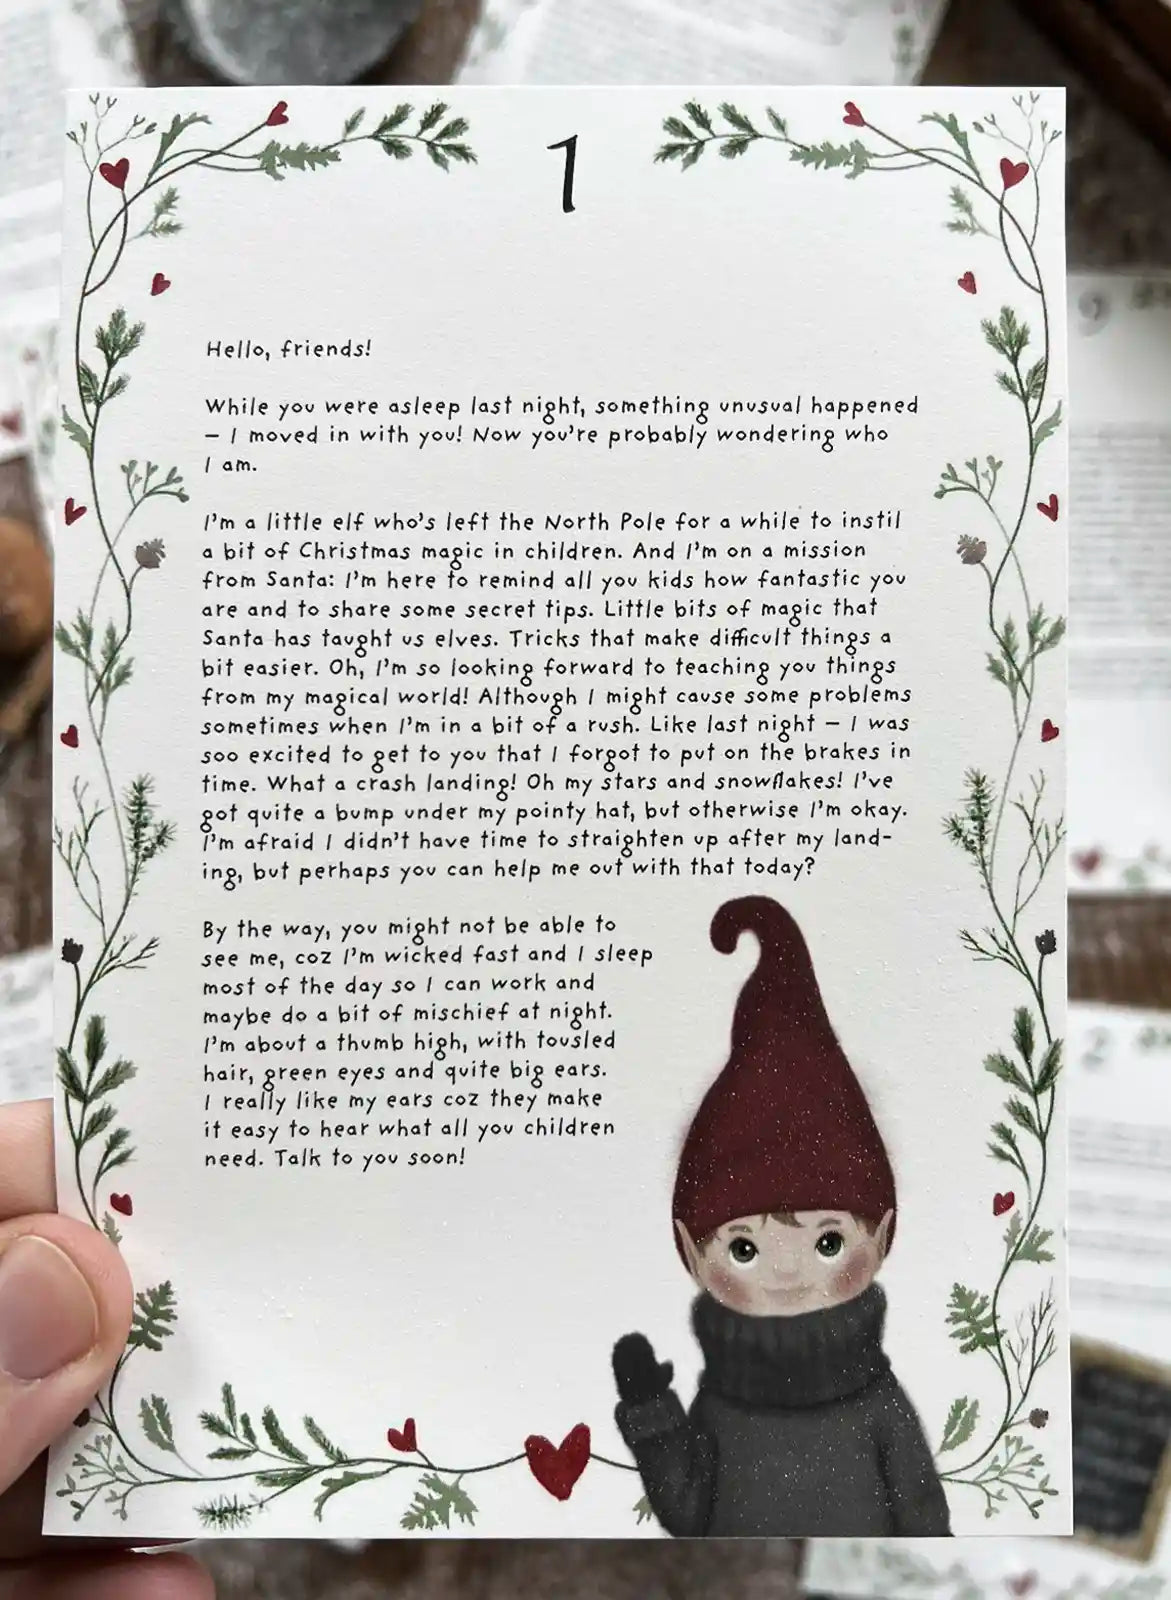 1
Hello, friends!
While you were asleep last night, something unusual happened
– I moved in with you! Now you're probably wondering who
I am.
I'm a little elf who's left the North Pole for a while to instil
a bit of Christmas magic in children. And I'm on a mission
from Santa: I'm here to remind all you kids how fantastic you
are and to share some secret tips. Little bits of magic that
Santa has taught us elves. Tricks that make difficult things a
bit easier. Oh, I'm so looking forward to teaching you things
from my magical world! Although I might cause some problems
sometimes when I'm in a bit of a rush. Like last night – I was
soo excited to get to you that I forgot to put on the brakes in
time. What a crash landing! Oh my stars and snowflakes! I've
got quite a bump under my pointy hat, but otherwise I'm okay.
I'm afraid I didn't have time to straighten up after my land-
ing, but perhaps you can help me out with that today?
By the way, you might not be able to
see me, coz I'm wicked fast and I sleep
most of the day so I can work and
maybe do a bit of mischief at night.
I'm about a thumb high, with tousled
hair, green eyes and quite big ears.
I really like my ears coz they make
it easy to hear what all you children
need. Talk to you soon!
2